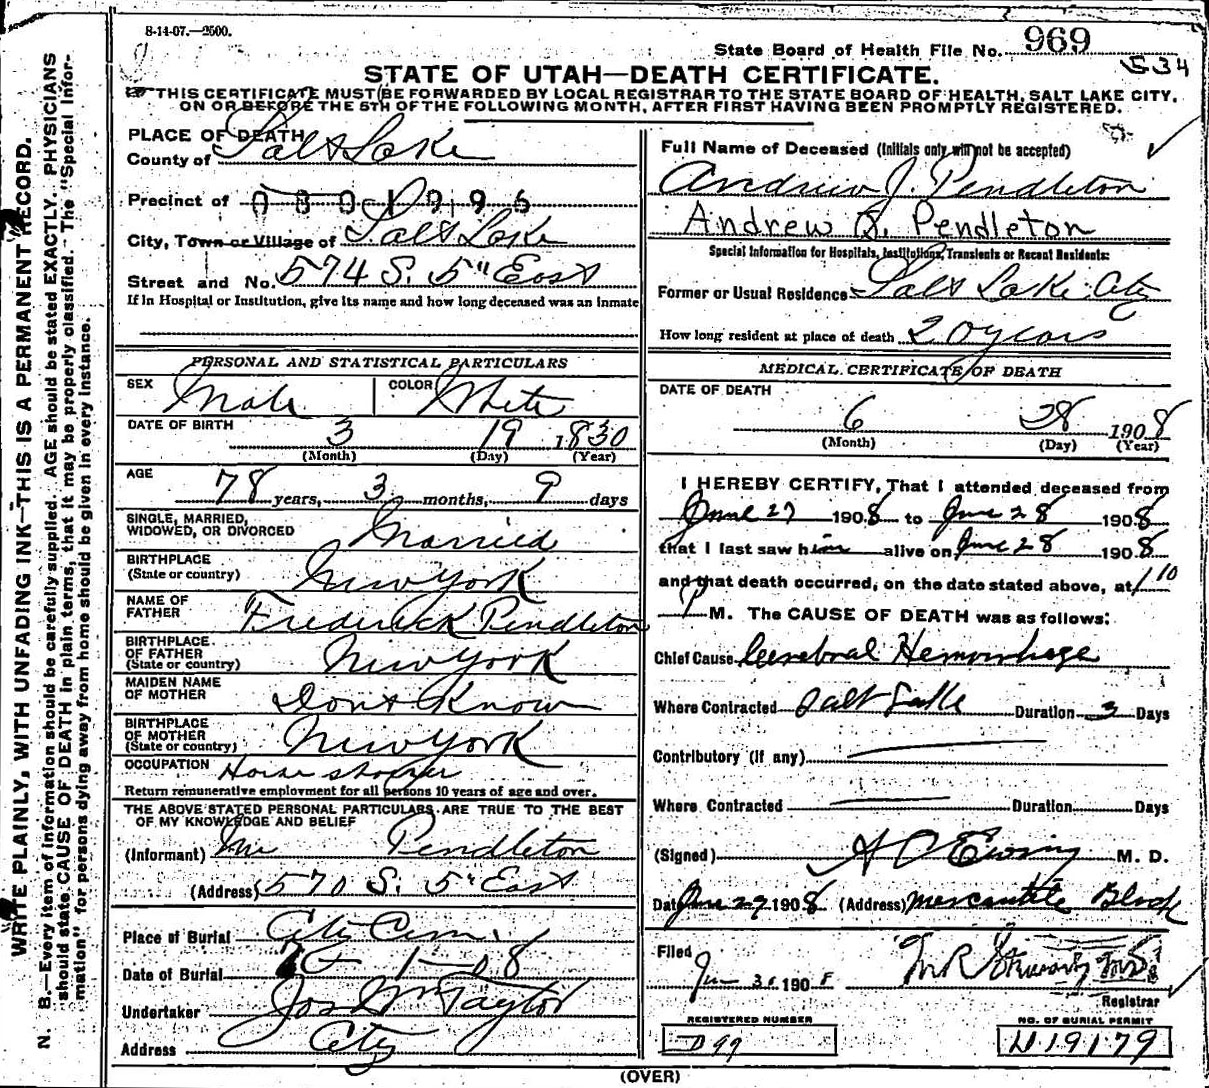 8-14-07.—2500.
State Board of Health File No. 969
534
STATE OF UTAH—DEATH CERTIFICATE.
THIS CERTIFICATE MUST BE FORWARDED BY LOCAL REGISTRAR TO THE STATE BOARD OF HEALTH, SALT LAKE CITY,
ON OR BEFORE THE 5TH OF THE FOLLOWING MONTH, AFTER FIRST HAVING BEEN PROMPTLY REGISTERED.
WRITE PLAINLY, WITH UNFADING INK—THIS IS A PERMANENT RECORD.
N. B.—Every item of information should be carefully supplied. AGE should be stated EXACTLY. PHYSICIANS
should state CAUSE OF DEATH in plain terms, that it may be properly classified. The "Special Infor-
mation" for persons dying away from home should be given in every instance.
PLACE OF DEATH
County of Salt Lake
Precinct of
City, Town or Village of Salt Lake
Street and No. 574 S. 5" East
If in Hospital or Institution, give its name and how long deceased was an inmate
PERSONAL AND STATISTICAL PARTICULARS
SEX Male COLOR White
DATE OF BIRTH 3 19 1830
(Month) (Day) (Year)
AGE 78 years, 3 months, 9 days
SINGLE, MARRIED,
WIDOWED, OR DIVORCED Married
BIRTHPLACE
(State or country) New York
NAME OF
FATHER Frederick Pendleton
BIRTHPLACE
OF FATHER
(State or country) New York
MAIDEN NAME
OF MOTHER Dont Know
BIRTHPLACE
OF MOTHER
(State or country) New York
OCCUPATION Horse shoer
Return remunerative employment for all persons 10 years of age and over.
THE ABOVE STATED PERSONAL PARTICULARS ARE TRUE TO THE BEST
OF MY KNOWLEDGE AND BELIEF
(Informant) Pendleton
(Address) 570 S. 5" East
Place of Burial City Cem.
Date of Burial 1-08
Undertaker Jos Wm Taylor
Address City
Full Name of Deceased (Initials only will not be accepted)
Andrew J. Pendleton
Andrew J. Pendleton
Special Information for Hospitals, Institutions, Transients or Recent Residents:
Former or Usual Residence Salt Lake City
How long resident at place of death 20 years
MEDICAL CERTIFICATE OF DEATH
DATE OF DEATH
6 28 1908
(Month) (Day) (Year)
I HEREBY CERTIFY, That I attended deceased from
June 27 1908 to June 28 1908
that I last saw him alive on June 28 1908
and that death occurred, on the date stated above, at 1 10
P M. The CAUSE OF DEATH was as follows:
Chief Cause Cerebral Hemorrhage
Where Contracted Salt Lake Duration 3 Days
Contributory (if any)
Where Contracted Duration Days
(Signed) Ewing M. D.
Date June 29 1908 (Address) Mercantile Block
Filed Jun 30 1908
Registrar
REGISTERED NUMBER NO. OF BURIAL PERMIT
D 99 19179
(OVER)